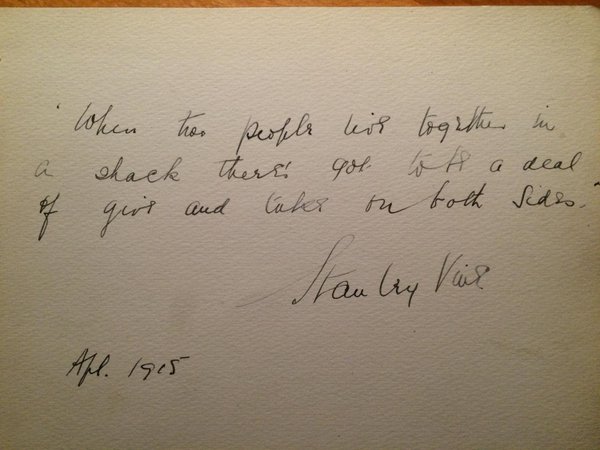 "When two people live together in
a shack there's got to be a deal
of give and take on both sides."
Stanley Vine
Apl. 1915